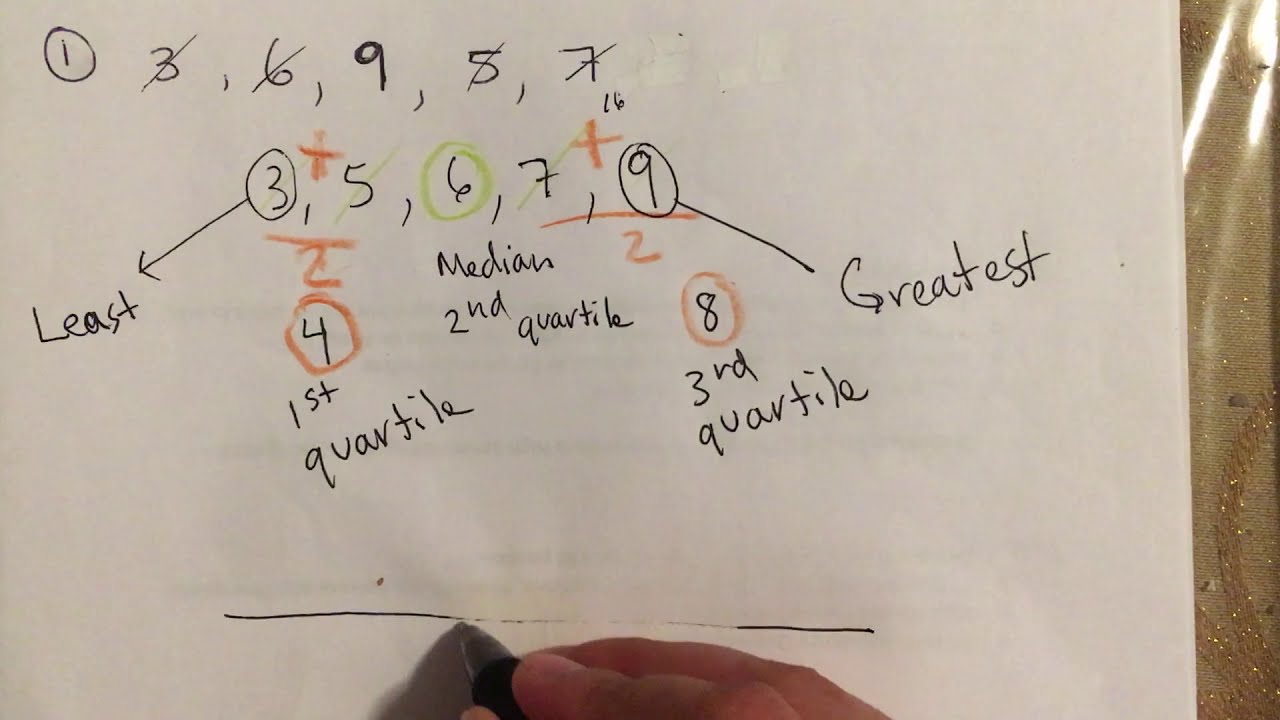 ① 3, 6, 9, 5, 7
16
+ +
3, 5, 6, 7, 9
2 2
Median
Least
Greatest
4
2nd quartile
8
1st
quartile
3rd
quartile